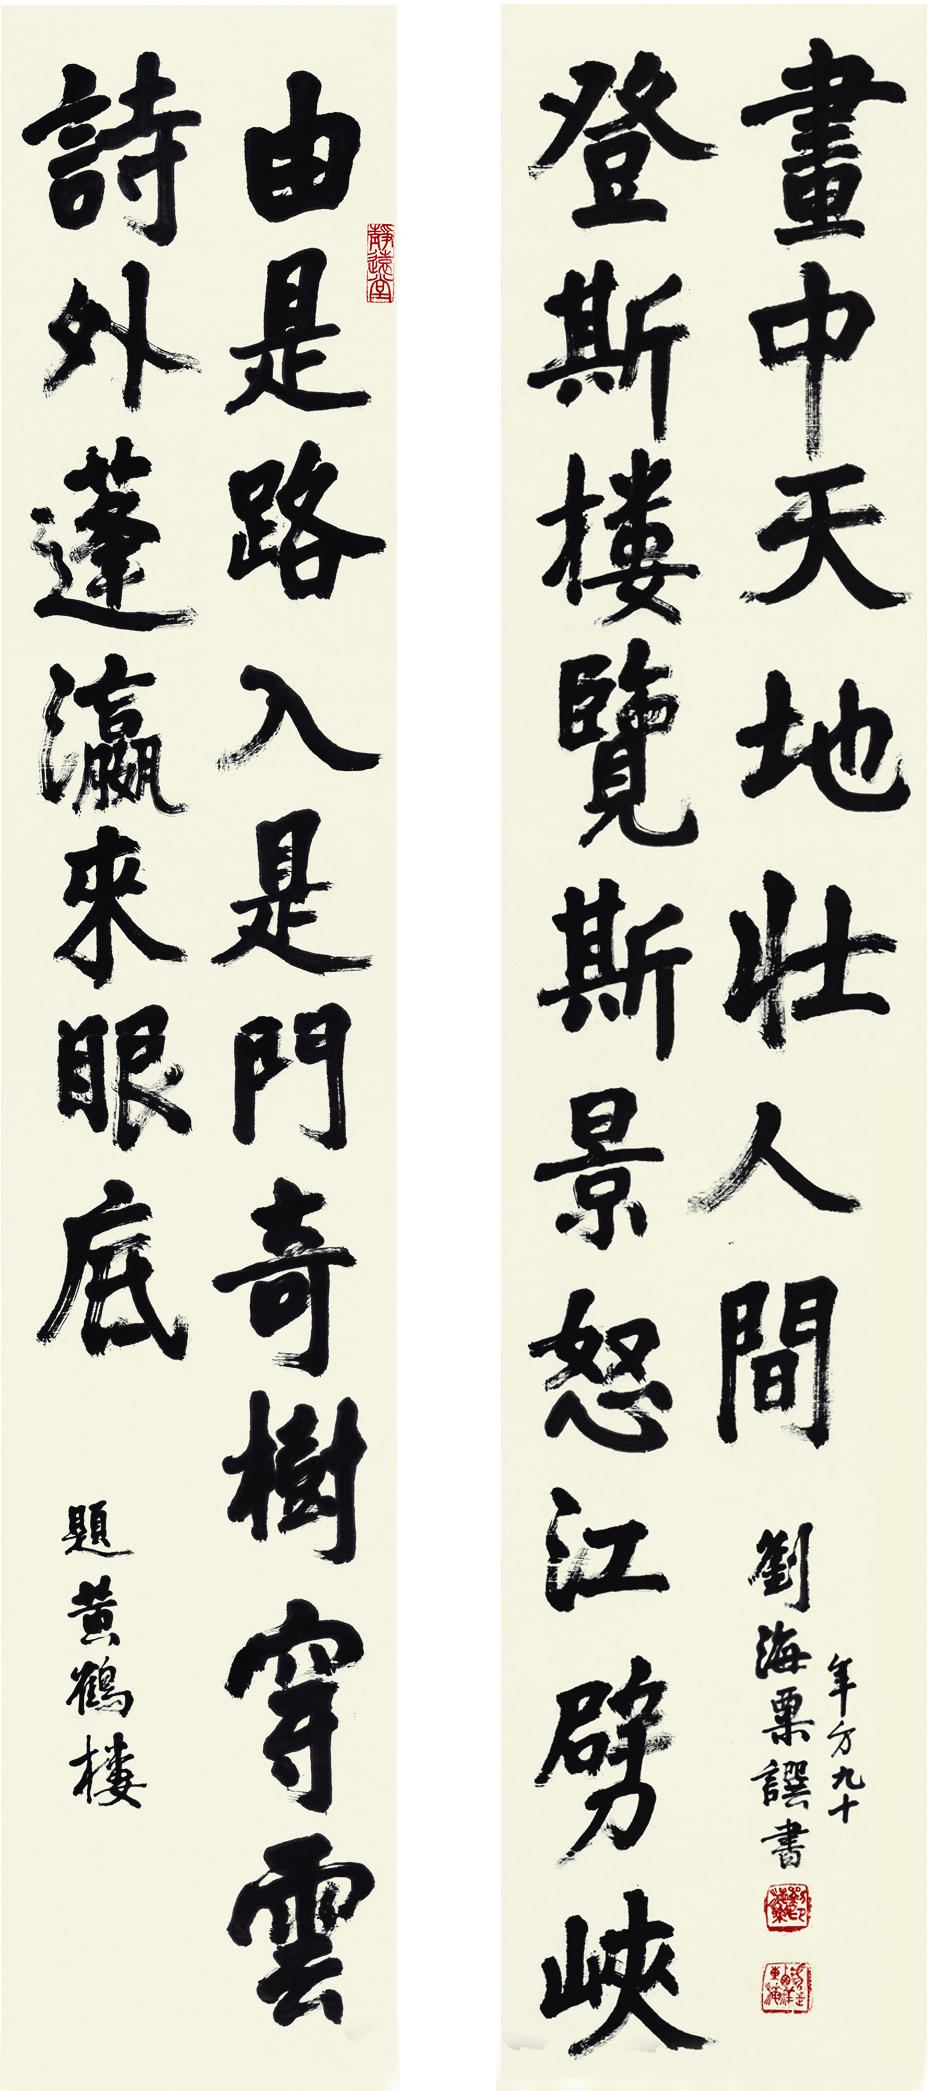 由是路入是門奇樹穿雲
詩外蓬瀛來眼底
題黃鶴樓
靜遠堂
登斯樓覽斯景怒江劈峽
畫中天地壯人間
劉海粟譔書
年方九十
劉海粟印